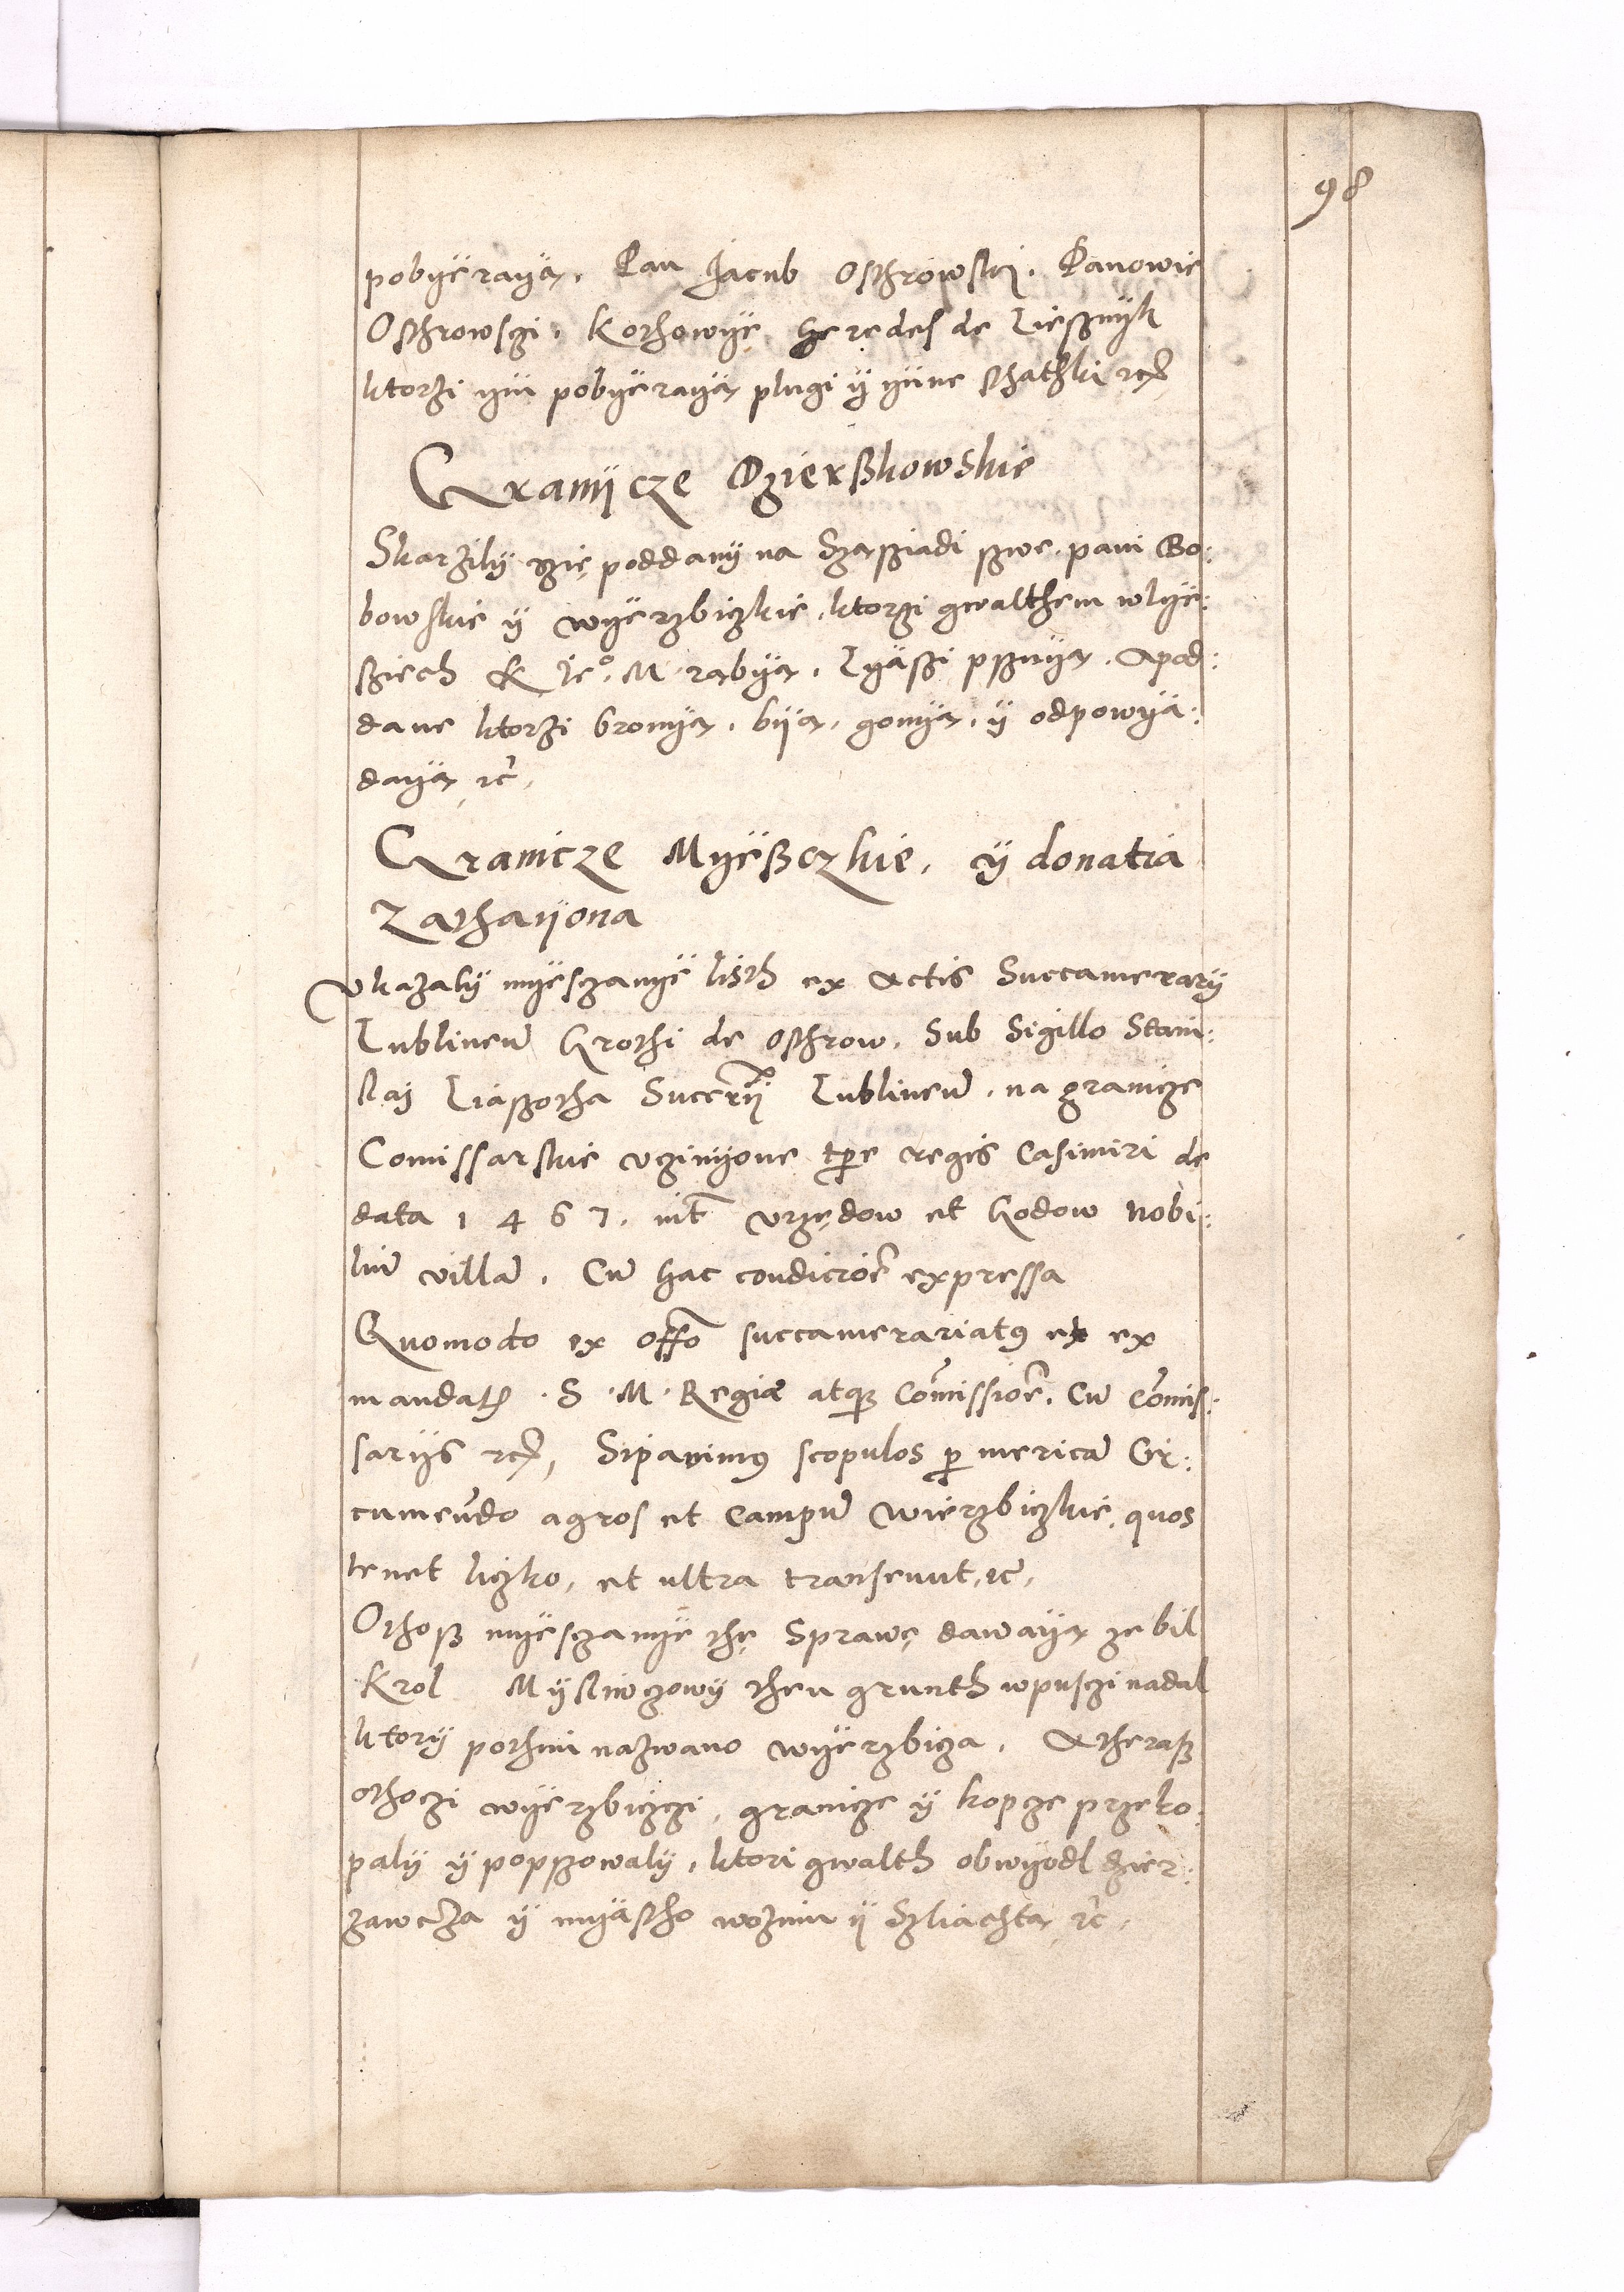 98
pobyëraÿą. Pan Jacub Osthrowski. Panowie
Osthrowsczi. Kothowÿe heredes de Liesznÿk
ktorzi ÿm pobyëraÿą plugi ÿ ÿnne sthathki etc.
Graniÿcze Dzierßkowskie
Skarżilÿ szię poddanÿ na Szasziadi szwe. pani Bo:
bowskie ÿ wÿerzbiczkie, ktorzi gwalthem wlÿe:
sziech K Je°. M. rabÿą. Lÿaszi pszuÿą. A pod:
dane ktorzi bronÿą. biją. gonÿą. ÿ odpowÿa:
daÿą etc.
Granicze Myëßczkie. ÿ donatia
Zathaÿona
Ukazalÿ myësczanÿë listh ex Actis Succamerarÿ
Lublinen̄ Grothi de Osthrow. Sub Sigillo Stani:
slaj Liaszotha Succrÿ Lublinen̄. na granicze
Comissarskie uczinÿone tp̄re regis Casimiri de
data 1 4 6 7. int̄ Urzędow et Godow nobi:
liū villā. Cū hac condiciōe expressa
Quomodo ex offō succamerariatꝰ et ex
mandato S. M. Regiæ atqꝫ Com̄issiōe. Cū Com̄is:
sarÿs etc. Sipavimꝰ scopulos ꝑ mericā Cir:
cumeūdo agros et campū wierzbiczkie. quos
tenet liczko, et ultra transeunt, etc.
Othoß myësczanÿë thę Sprawę dawaÿą ze bil
Krol Mÿsliwczowÿ then grunth w puszczi nadal
ktorÿ pothim nazwano wÿërzbicza. A theraß
othoczi wÿerzbiczczi, granicze ÿ kopcze przeko:
palÿ ÿ popszowalÿ, ktori gwalth obwÿodl dzier:
zawcza ÿ mÿastho woznim ÿ Szliachtą etc.